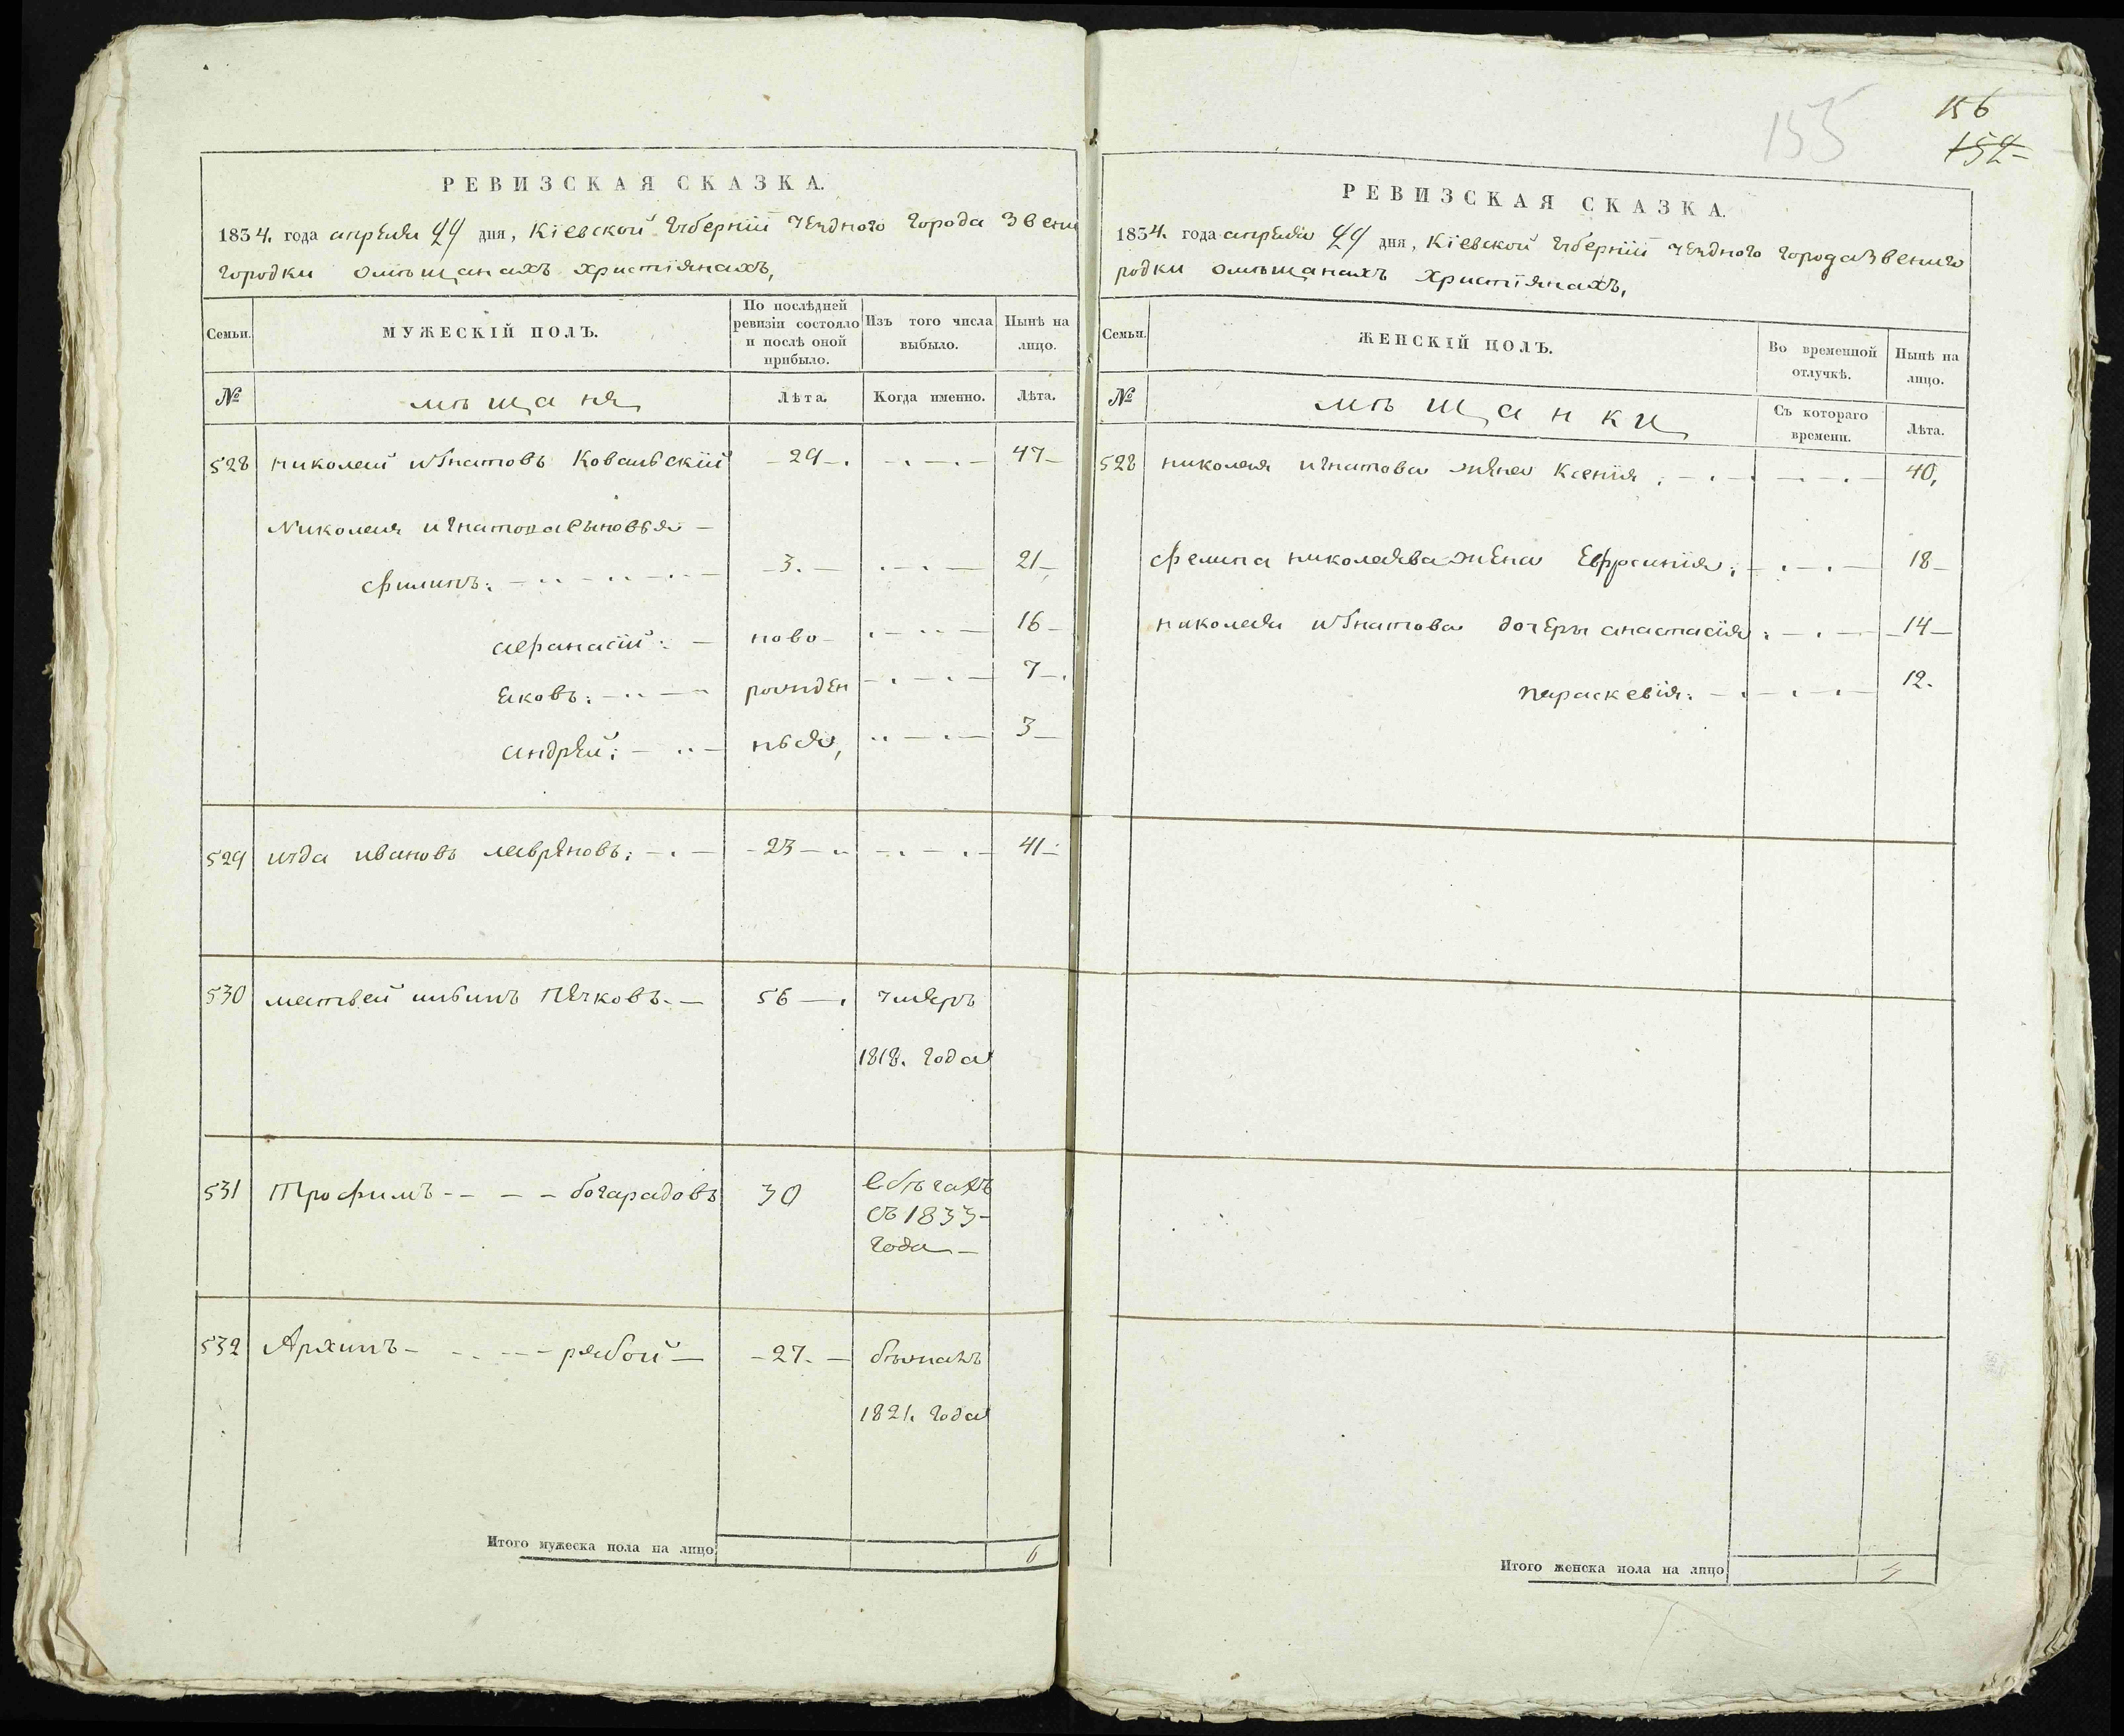 РЕВИЗСКАЯ СКАЗКА.
1834. года апреля 24 дня, Кіевской губерніи уезднаго города Звени
городки омѣщанахъ христіянахъ,
Семьи.
МУЖЕСКІЙ ПОЛЪ.
По послѣдней ревизіи состояло и послѣ оной прибыло.
Изъ того числа выбыло.
Нынѣ на лицо.
№
мѣщаня
Лѣта.
Когда именно.
Лѣта.
528 николай игнатовъ Ковальскій -29-. 47-
Николая игнатова сыновья -
филипъ: -3.- 21-
афанасій: - ново- 16-
яковъ: рожден 7-.
андрей: ныя, 3-
529 иванов лавряновъ: -23- 41-
530 матвей Печковъ.- 56-. умеръ
1818. года
531 Трофимъ - - - - богарадовъ 30 вбѣгахъ
съ 1833-
года-
532 Архипъ - рябой - -27.- бѣжалъ
1821. года
Итого мужеска пола на лицо 6
155
156
152
РЕВИЗСКАЯ СКАЗКА.
1834. года апреля 24 дня, Кіевской губерніи уезднаго города Звениго
родки омѣщанахъ христіянахъ,
Семьи.
ЖЕНСКІЙ ПОЛЪ.
Во временной отлучкѣ.
Нынѣ на лицо.
№
мѣщанки
Съ котораго времени.
Лѣта.
528 николая игнатова жена Ксенія. 40,
филипа николаева жена Ефросинія: 18-
николая игнатова дочеры анастасія: -14-
параскевія: 12.
Итого женска пола на лицо 4